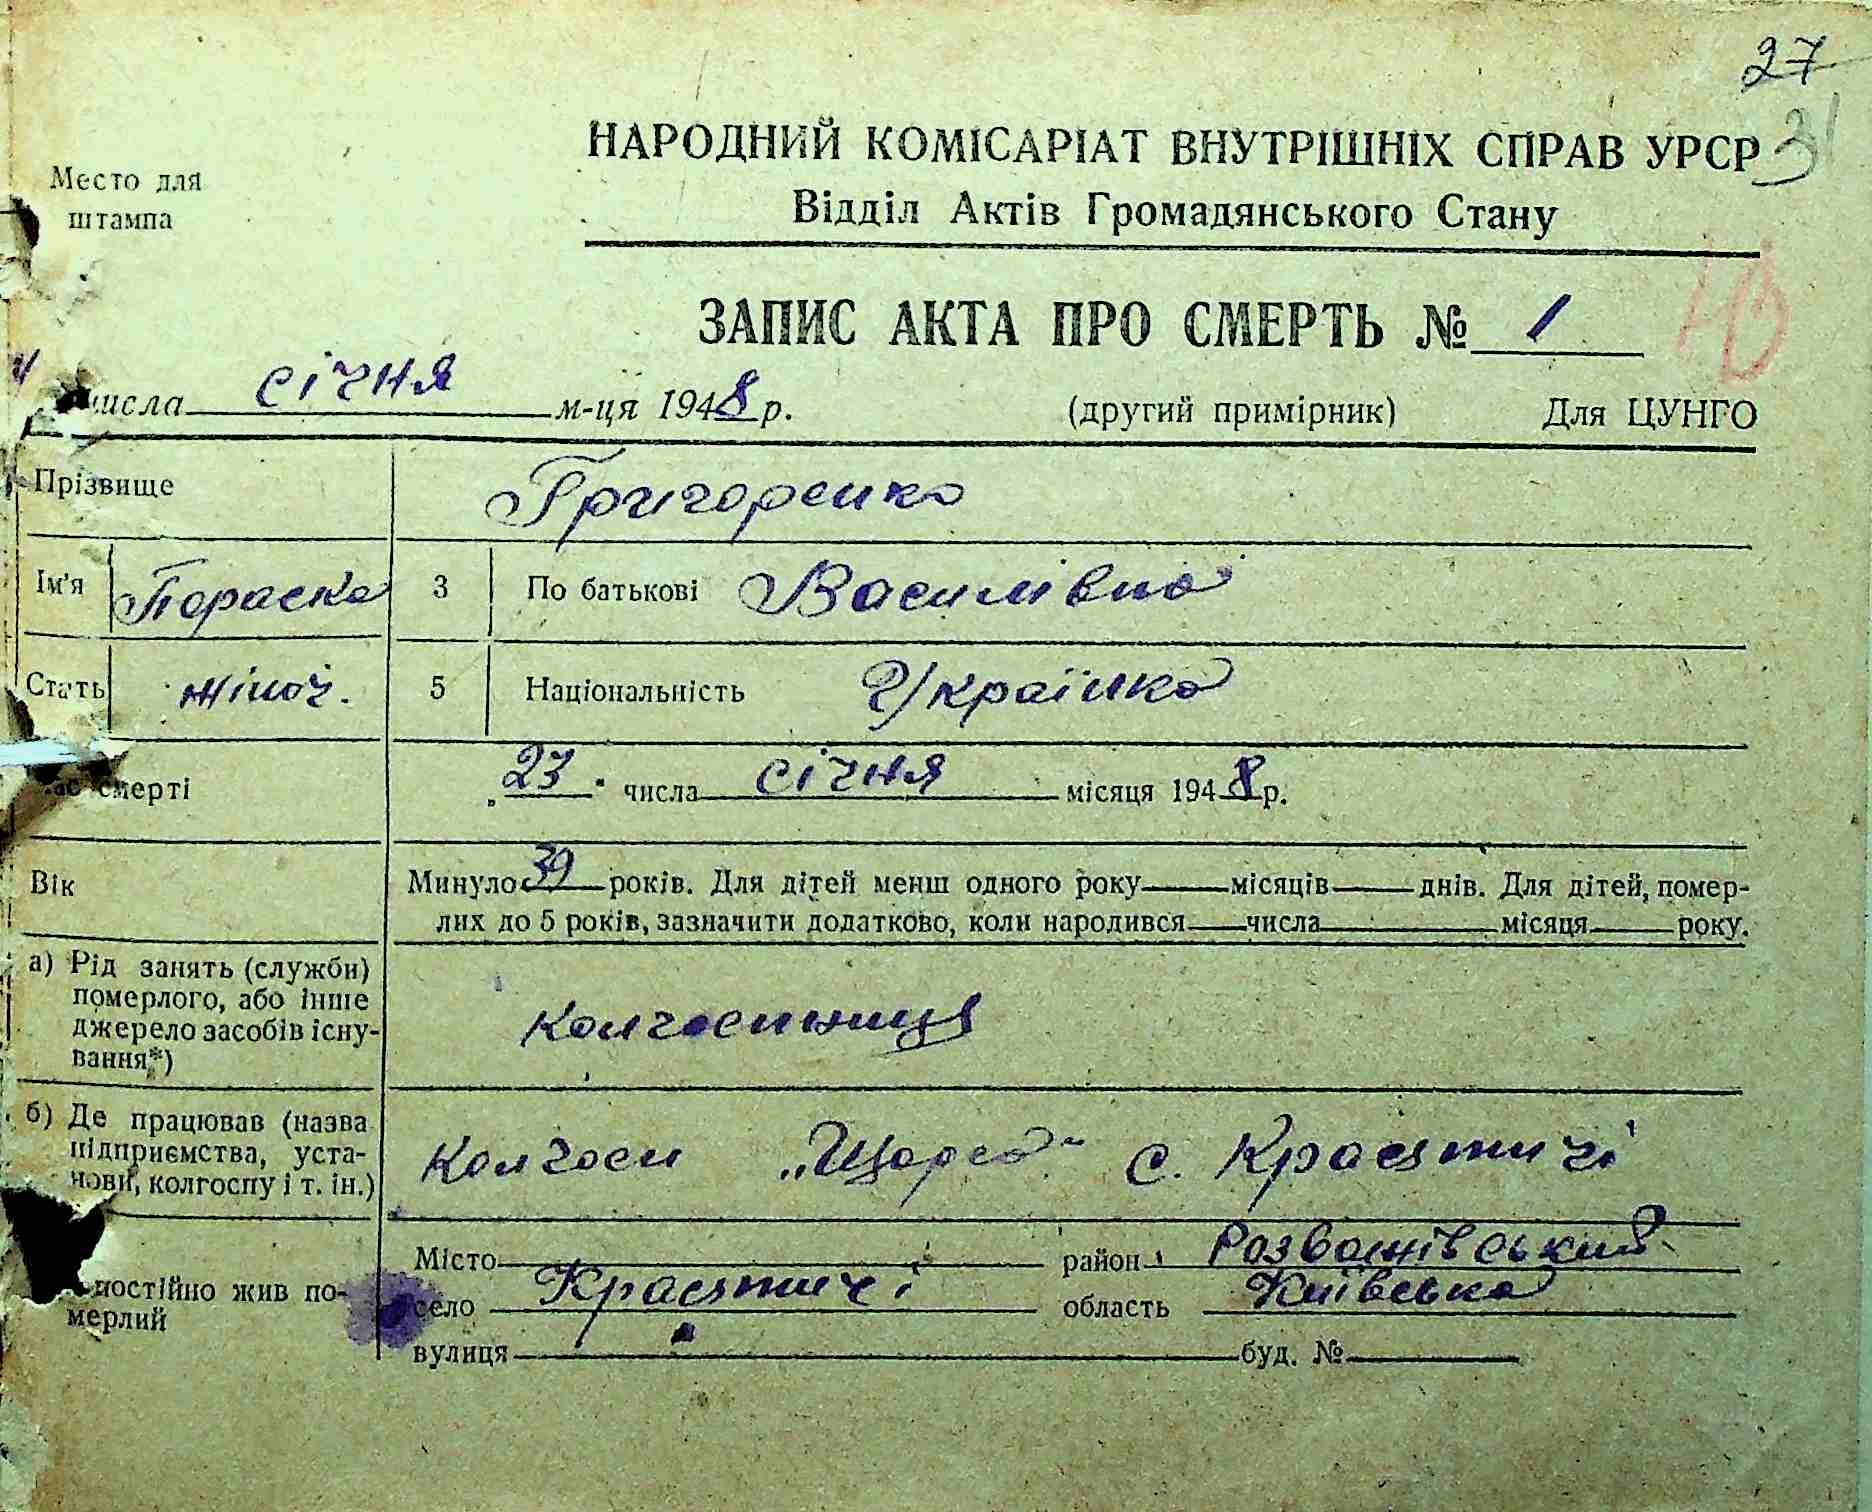 27
31
Место для
штампа
НАРОДНИЙ КОМІСАРІАТ ВНУТРІШНІХ СПРАВ УРСР
Відділ Актів Громадянського Стану
ЗАПИС АКТА ПРО СМЕРТЬ № 1
числа січня м-ця 1948 р. (другий примірник) Для ЦУНГО
Прізвище Григоренко
Ім'я Параска 3 По батькові Василівна
Стать жіноч. 5 Національність Українка
час смерті „23" числа січня місяця 1948 р.
Вік Минуло 39 років. Для дітей менш одного року місяців днів. Для дітей, помер-
лих до 5 років, зазначити додатково, коли народився числа місяця року.
а) Рід занять (служби)
померлого, або інше
джерело засобів існу-
вання*) колгоспниця
б) Де працював (назва
підприємства, уста-
нови, колгоспу і т. ін.) Колгосп „Щорса" с. Красятичі
Місто район Розважівський
постійно жив по-
мерлий село Красятичі область Київська
вулиця буд. №